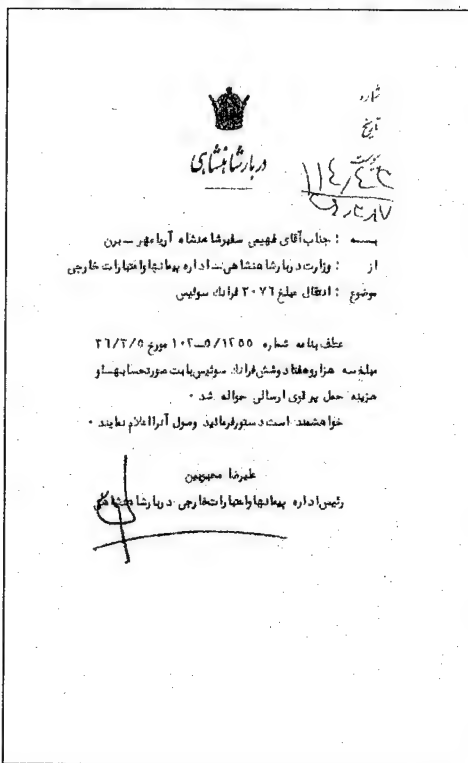 شماره
تاریخ
پیوست
دربار شاهنشاهی
بسه : جناب آقای فهیمی سفیر شاهنشاه آریامهر ــ برن
از : وزارت دربار شاهنشاهی ــ اداره پیمانها و اعتبارات خارجی
موضوع : انتقال مبلغ ۳۰۷۶ فرانک سوئیس
عطف بنامه شماره مورخ
مبلغ سه هزار و هفتاد و شش فرانک سوئیس بابت صورتحسابها و
هزینه حمل ارسالی حواله شد ۰
خواهشمند است دستور فرمائید وصول آنرا اعلام نمایند ۰
علیرضا محبوبین
رئیس اداره پیمانها و اعتبارات خارجی دربار شاهنشاهی